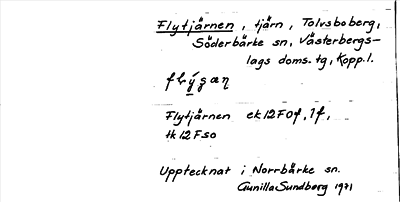 Flytjärnen, tjärn, Tolvsboberg,
Söderbärke sn, Västerbergs-
lags doms.tg, Kopp.l.
Flytjärnen ek12F0f, 1f,
tk12Fso
Upptecknat i Norrbärke sn.
Gunilla Sundberg 1971